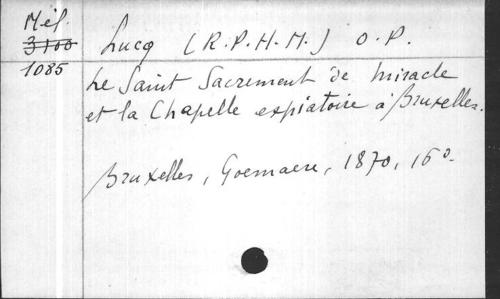 Mél.
3100
1085
Lucq (R.P.H.M.) O.P.
Le Saint Sacrement de miracle
et la Chapelle expiatoire à Bruxelles.
Bruxelles, Goemaere, 1870, 16o.